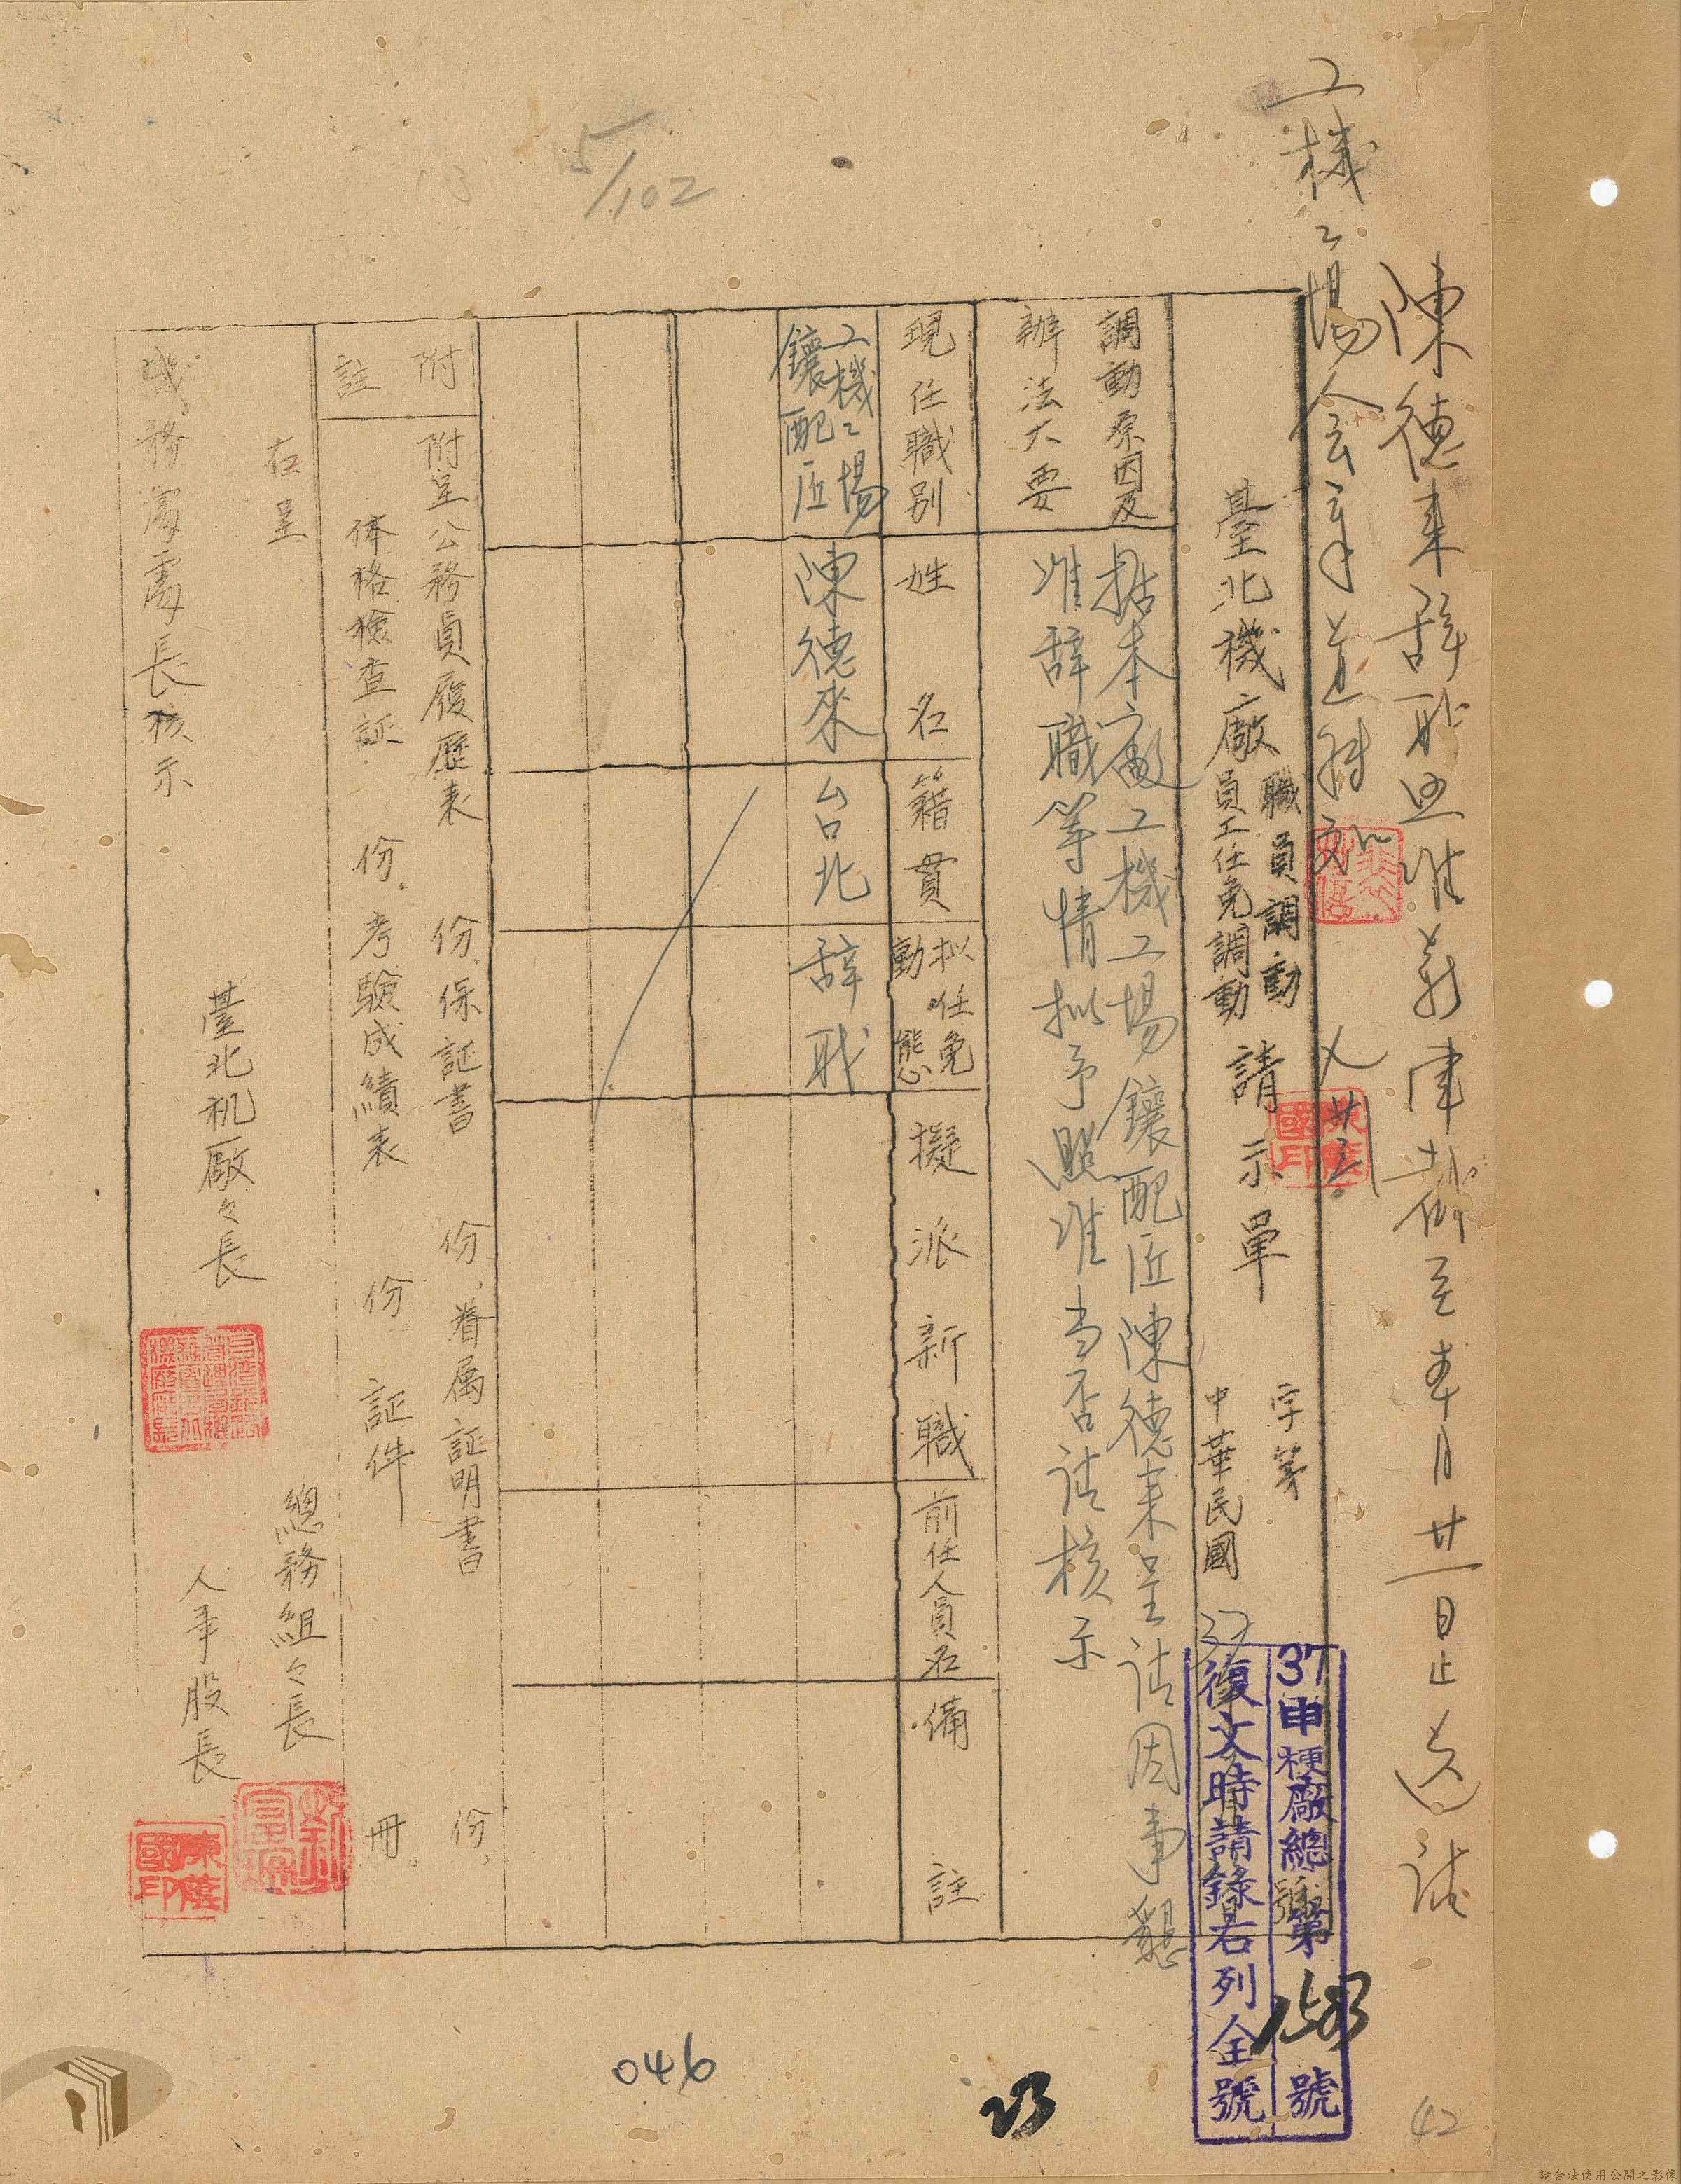 陳德來辞職照准薪津截至本月廿一日止
工機工場会章
臺北機廠
職員調動
員工任免調動
請示單
字第
號
中華民國 37
37申梗廠總第
153
號
復文時請錄右列全號
調動原因及
辦法大要
據本廠工機工場鑲配匠陳德来呈請因事懇
准辞職等情拟予照准当否請核示
現任職別
姓名
籍貫
拟任免
動態
擬派新職
前任人員名
備註
工機工場
鑲配匠
陳德來
台北
辞职
附
註
附呈公務員履歷表 份、保証書 份、眷属証明書 份、
体格檢查証 份。考驗成績表 份 証件 冊。
右呈
機務處處長核示
臺北机廠々長
總務組々長
人事股長
陳蔭
國印
5/102
046
23
42
請合法使用公開之影像